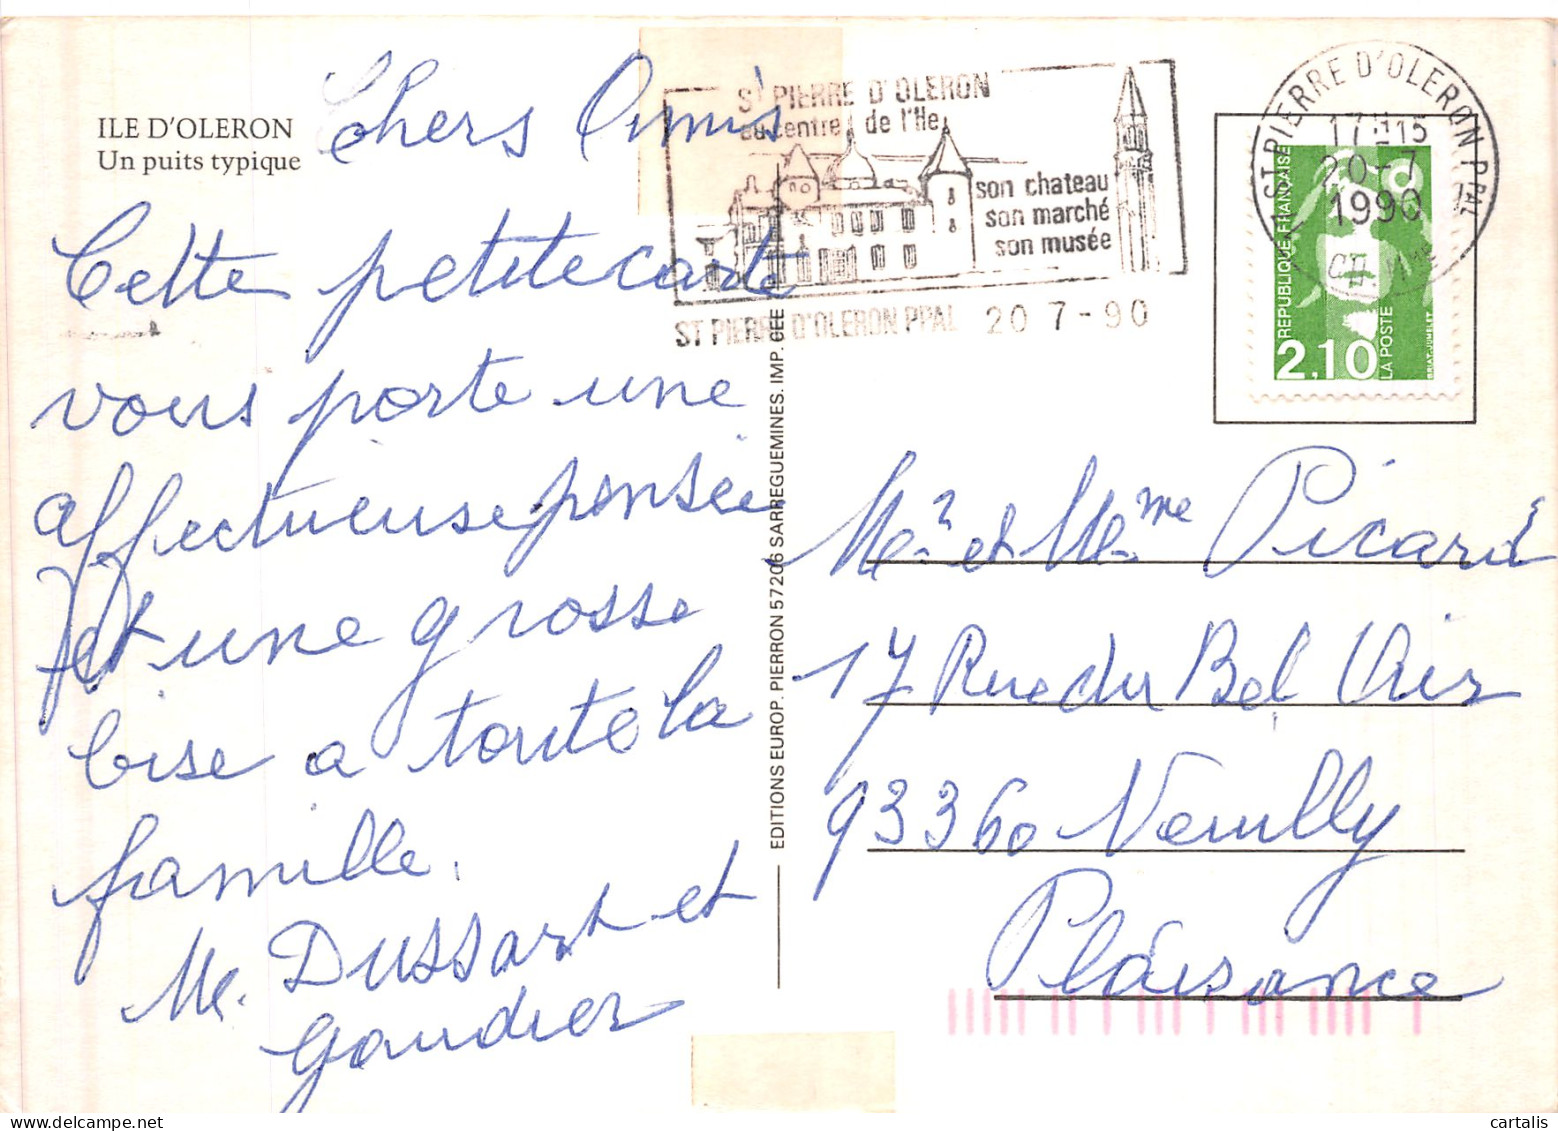 ILE D'OLERON
Un puits typique
Chers Amis
Cette petite carte
vous porte une
affectueuse pensée
et une grosse
bise a toute la
famille.
Me. Dussart et
Gaudier
EDITIONS EUROP. PIERRON 57206 SARREGUEMINES. IMP. CEE
ST PIERRE D'OLERON
au centre de l'Ile
son chateau
son marché
son musée
ST PIERRE D'OLERON PPAL 20 7-90
ST PIERRE D'OLERON PPAL
17H15
20-7
1990
CH. Mme
REPUBLIQUE FRANÇAISE
2,10
LA POSTE
BRIAT-JUMELET
Mr et Mme Picard
17 Rue du Bel Air
93360 Neuilly
Plaisance
cartalis